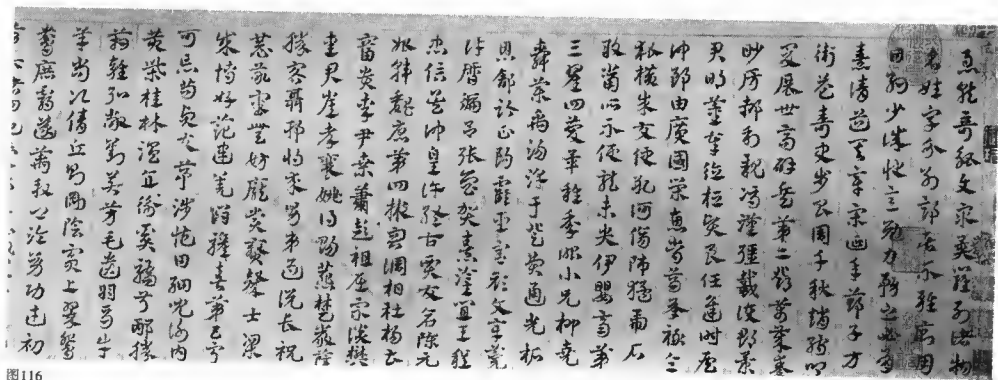 急就奇觚與衆異羅列諸物
名姓字分別部居不雜廁用
日約少誠快意勉力務之必有
憙請道其章宋延年鄭子方
衛益壽史步昌周千秋趙孺卿
爰展世高辟兵第二鄧萬歲秦
眇房郝利親馮漢彊戴護郡景
君明董奉德桓賢良任逢時侯
仲郎由廣國榮惠常烏承祿令
狐橫朱交便孔何傷師猛虎石
敢當所不侵龍未央伊嬰齊第
三翟回慶畢稚季昭小兄柳堯
舜藥禹湯淳于登費通光柘
恩舒路正陽霍聖宮顏文章莞
財歷偏呂張魯賀憙灌宜王程
忠信吳仲皇許終古賈友倉陳元
始韓魏唐第四掖容調柏杜楊曹
富貴李尹桑蕭彭祖屈宗談樊
愛君崔孝襄姚得賜燕楚嚴薛
勝客聶邘將求男弟過說長祝
恭敬審無妨龐賞贛來士梁
成博好范建羌閻驩喜第五甯
可忘苟貞夫苗涉臧田細兒謝內
黃柴桂林溫直衡奚驕叔邴勝
箱雍弘敞劉若芳毛遺羽馬牛
羊尚次倩丘則剛陰賓上翠鴛
鴦庶霸遂萬段卿泠幼功武初
图116